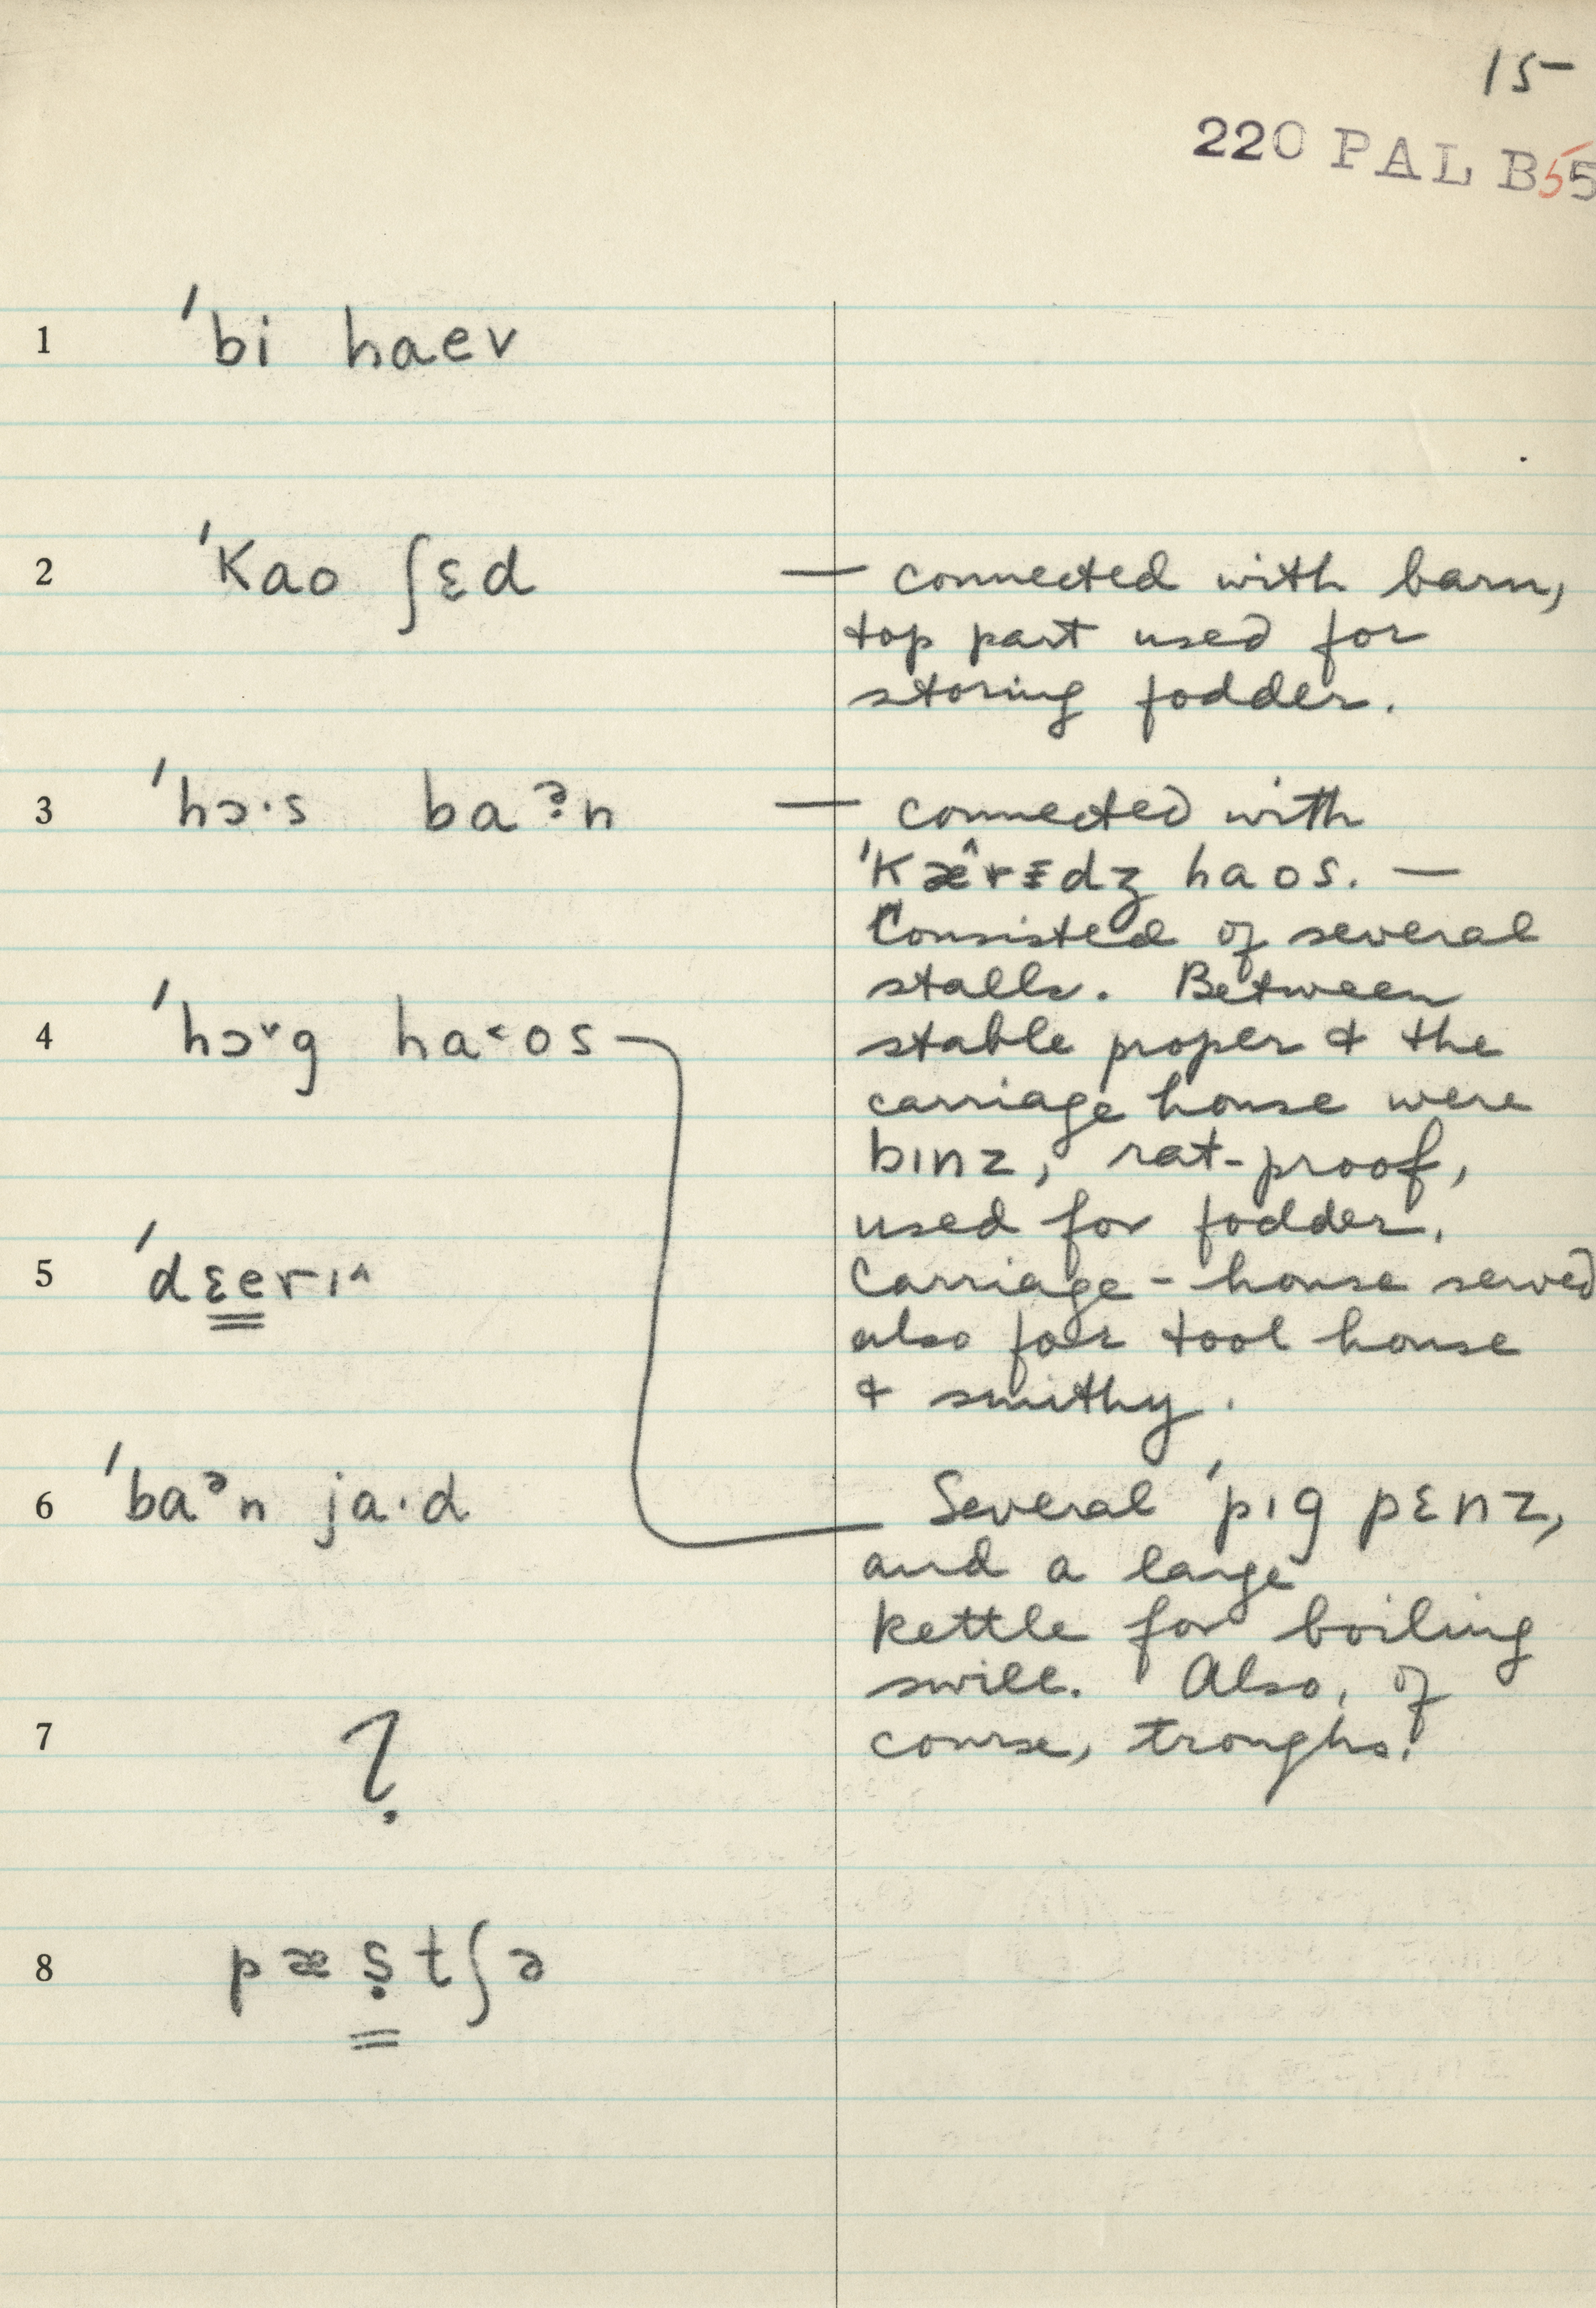 15
220 PAL B55
1 ˈbi haev
2 ˈkao ʃɛd — connected with barn,
top part used for
storing fodder.
3 ˈhɔ·s baˀ̣n — connected with
ˈkæ^rɪdʒ haos. —
Consisted of several
stalls. Between
4 ˈhɔ˅g ha˂os — stable proper & the
carriage house were
bɪnz, rat-proof,
used for fodder.
5 ˈdɛerɪ^ Carriage-house served
also for tool house
& smithy.
6 ˈbaᵊn ja·d Several ˈpɪg pɛnz,
and a large
kettle for boiling
swill. Also, of
7 ? course, troughs.
8 pæṣtʃə